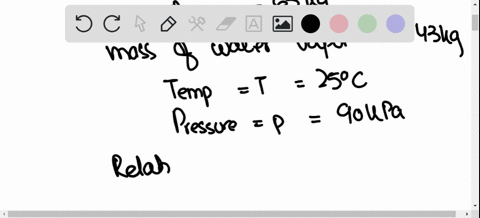 mass of water vapor 43kg
Temp = T = 25°C
Pressure = p = 90kPa
Relat